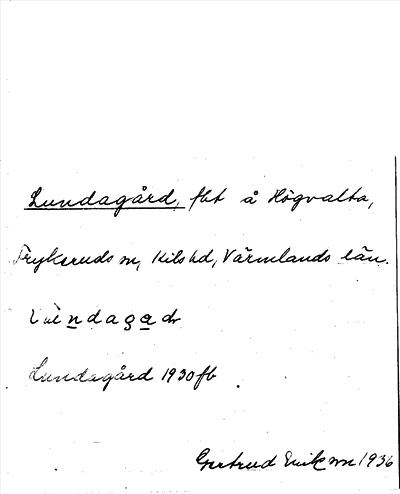 Lundagård, fbt å Högvalta,
Frykeruds sn, Kils hd, Värmlands län.
Lundagård 1930 fb
Gertrud Eriksson 1936